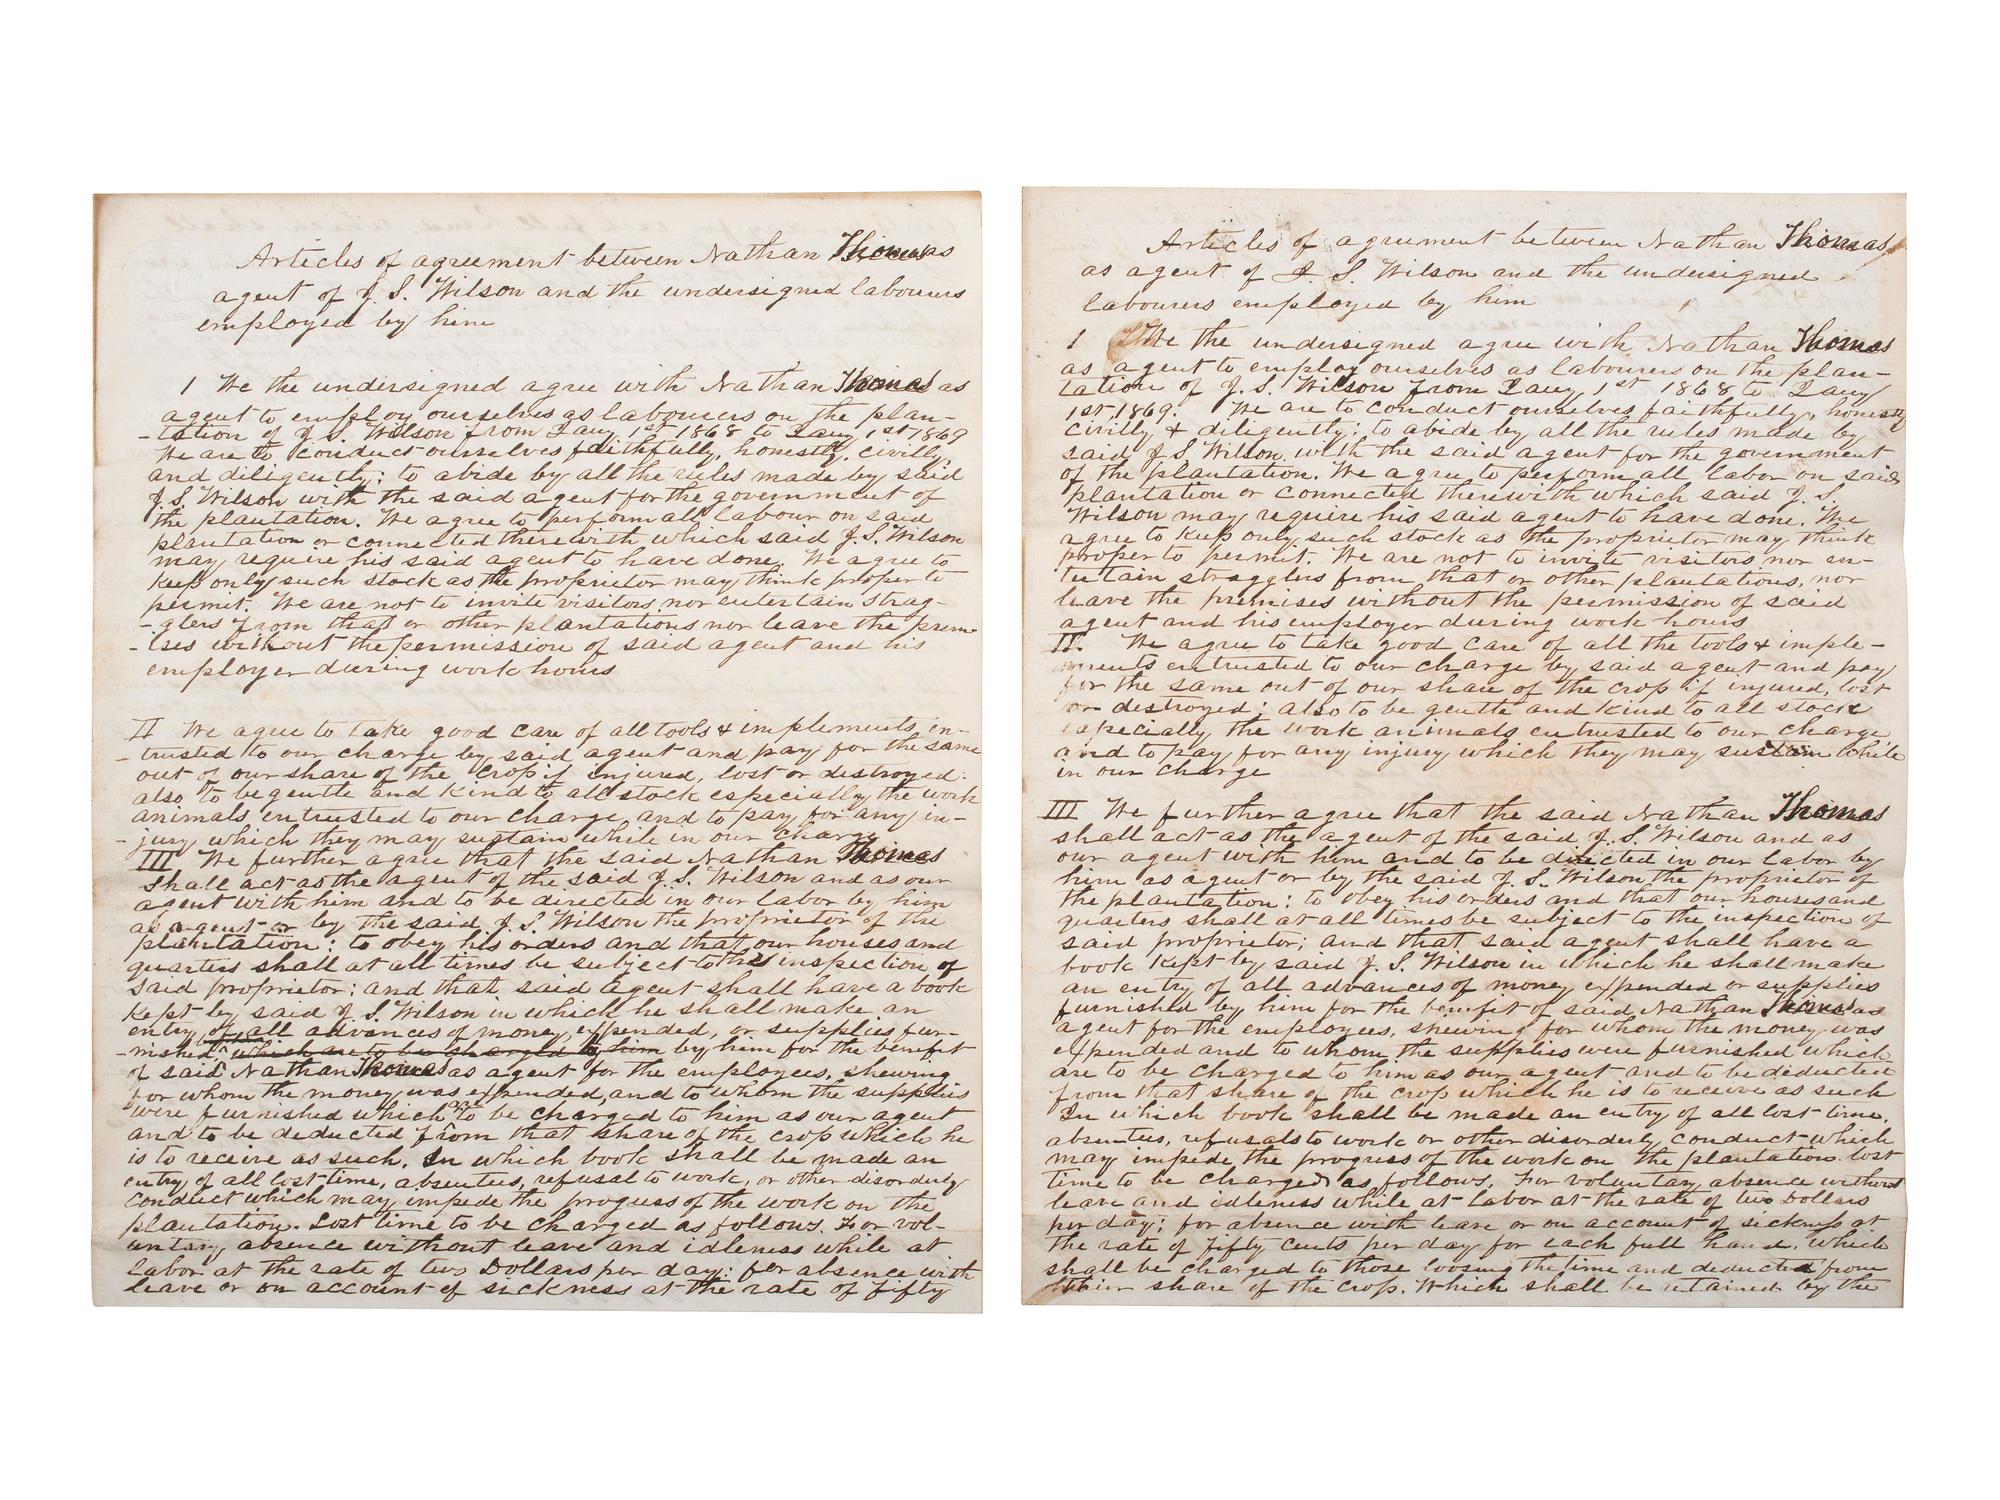 Articles of agreement between Nathan Thomas as
agent of J. S. Wilson and the undersigned labourers
employed by him
1 We the undersigned agree with Nathan Thomas as
agent to employ ourselves as labourers on the plan-
-tation of J. S. Wilson from Jany 1st 1868 to Jany 1st 1869
We are to conduct ourselves faithfully, honestly, civilly,
and diligently; to abide by all the rules made by said
J. S. Wilson with the said agent for the government of
the plantation. We agree to perform all labour on said
plantation or connected therewith which said J. S. Wilson
may require his said agent to have done. We agree to
keep only such stock as the proprietor may think proper to
permit. We are not to invite visitors nor entertain strag-
-glers from that or other plantations nor leave the prem-
-ises without the permission of said agent and his
employer during work hours
II We agree to take good care of all tools & implements en-
-trusted to our charge by said agent and pay for the same
out of our share of the crop if injured, lost or destroyed:
also to be gentle and kind to all stock especially the work
animals entrusted to our charge and to pay for any in-
-jury which they may sustain while in our charge
III We further agree that the said Nathan Thomas
shall act as the agent of the said J. S. Wilson and as our
agent with him and to be directed in our labor by him
as agent or by the said J. S. Wilson the proprietor of the
plantation: to obey his orders and that our houses and
quarters shall at all times be subject to the inspection of
said proprietor; and that said agent shall have a book
kept by said J. S. Wilson in which he shall make an
entry of all advances of money, expended, or supplies fur-
-nished which are to be charged to him by him for the benefit
of said Nathan Thomas as agent for the employees, shewing
for whom the money was expended, and to whom the supplies
were furnished which are to be charged to him as our agent
and to be deducted from that share of the crop which he
is to receive as such. In which book shall be made an
entry of all lost time, absentees, refusal to work, or other disorderly
conduct which may impede the progress of the work on the
plantation. Lost time to be charged as follows. For vol-
untary absence without leave and idleness while at
labor at the rate of two Dollars per day; for absence with
leave or on account of sickness at the rate of fifty
Articles of agreement between Nathan Thomas
as agent of J. S. Wilson and the undersigned
labourers employed by him
1 We the undersigned agree with Nathan Thomas
as agent to employ ourselves as labourers on the plan-
tation of J. S. Wilson from Jany 1st 1868 to Jany
1st 1869. We are to conduct ourselves faithfully, honestly
civilly & diligently; to abide by all the rules made by
said J S Wilson with the said agent for the government
of the plantation. We agree to perform all labor on said
plantation or connected therewith which said J. S.
Wilson may require his said agent to have done. We
agree to keep only such stock as the proprietor may think
proper to permit. We are not to invite visitors nor en-
tertain stragglers from that or other plantations, nor
leave the premises without the permission of said
agent and his employer during work hours
II. We agree to take good care of all the tools & imple-
ments entrusted to our charge by said agent and pay
for the same out of our share of the crop if injured, lost
or destroyed; also to be gentle and kind to all stock
especially the work animals entrusted to our charge
and to pay for any injury which they may sustain while
in our charge
III We further agree that the said Nathan Thomas
shall act as the agent of the said J. S. Wilson and as
our agent with him and to be directed in our labor by
him as agent or by the said J. S. Wilson the proprietor of
the plantation: to obey his orders and that our houses and
quarters shall at all times be subject to the inspection of
said proprietor; and that said agent shall have a
book kept by said J. S. Wilson in which he shall make
an entry of all advances of money expended or supplies
furnished by him for the benifit of said Nathan Thomas as
agent for the employees, shewing for whom the money was
expended and to whom the supplies were furnished which
are to be charged to him as our agent and to be deducted
from that share of the crop which he is to receive as such
In which book shall be made an entry of all lost time,
absentees, refusals to work or other disorderly conduct which
may impede the progress of the work on the plantation. lost
time to be charged as follows. For voluntary absence without
leave and idleness while at labor at the rate of two Dollars
per day; for absence with leave or on account of sickness at
the rate of fifty cents per day for each full hand. which
shall be charged to those loosing the time and deducted from
their share of the crop. Which shall be retained by the